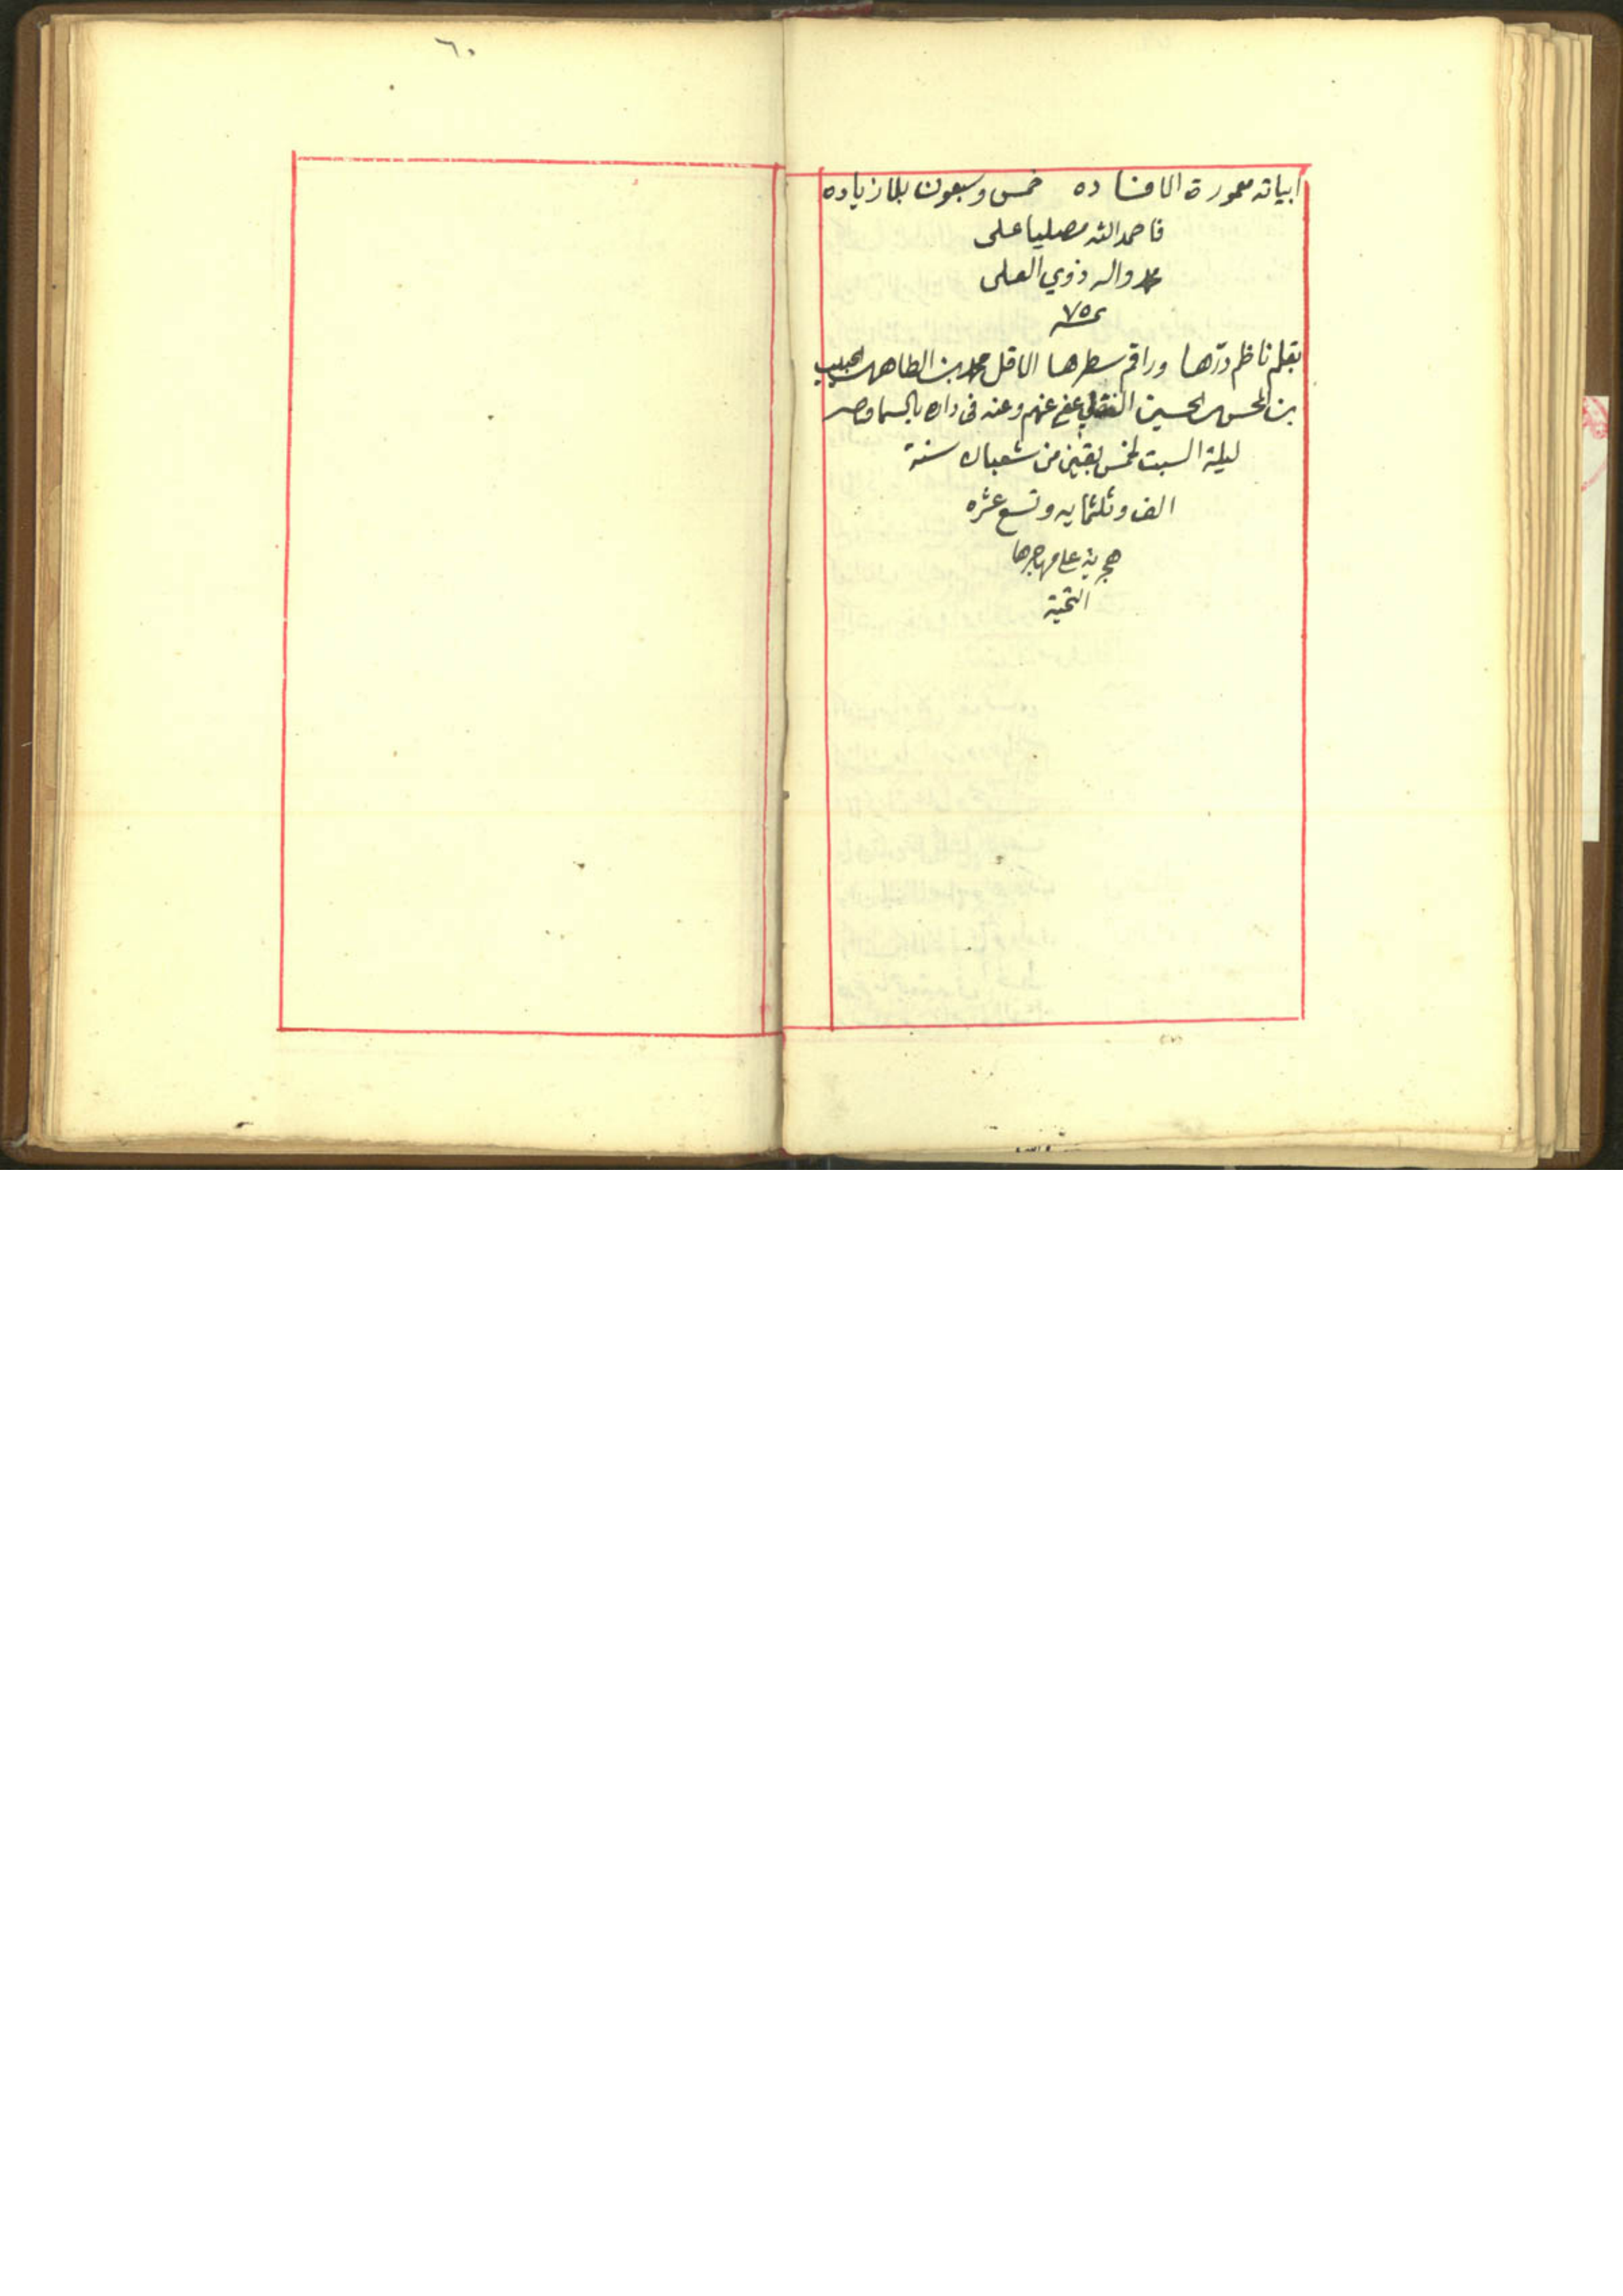 ٦٠
ابياته معمورة الافاده خمس وسبعون بلا زياده
فاحمد الله مصليا على
محمد واله ذوي العلى
٧٥
بقلم ناظم درّها وراقم سطرها الاقل محمد بن الطاهر الحبيب
بن المحسن الحسين الفضلي عفي عنهم وعنه في داره بالسماوه
ليلة السبت لخمس بقين من شعبان سنة
الف وثلثمايه وتسع عشره
هجرية على مهاجرها
التحية